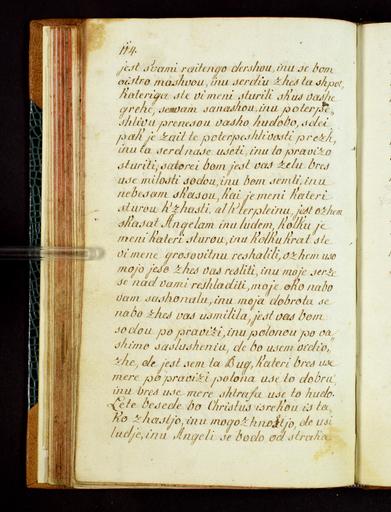 114.
jest svami raitengo dershou, inu se bom
oistro mashvou, inu serdiu zhes ta shpot,
Kateriga ste vi meni sturili skus vashe
grehe, sem vam sanashou, inu poterpe-
shlivu prenesou vasho hudobo, sdei
pak je zait te poterpeshlivosti prezh,
inu ta serd nase useti, inu to pravizo
sturiti, satorei bom jest vas zelu bres
use milosti sodou, inu bom semli, inu
nebesam skasou, kai je meni kateri
sturou k'zhasti, al k'terpleinu, jest ozhem
skasat Angelam inu ludem, Kolku je
meni kateri sturou, inu kolku krat ste
vi mene grosovitnu reshalili, ozhem uso
mojo jeso zhes vas resliti, inu moje serze
se nad vami reshladiti, moje oko nabo
vam sashonalu, inu moja dobrota se
nabo zhes vas usmilila, jest vas bom
sodou po pravizi, inu polonou po va-
shimo saslusheniu, de bo usem vidio-
zhe, de jest sem ta Bug, Kateri bres use
mere po pravizi polona use to dobru,
inu bres use mere shtrafa use to hudo.
Lete besede bo Christus isrekou is ta-
ko zhastjo, inu mogozhnostjo, de usi
ludje, inu Angeli se bodo od straha